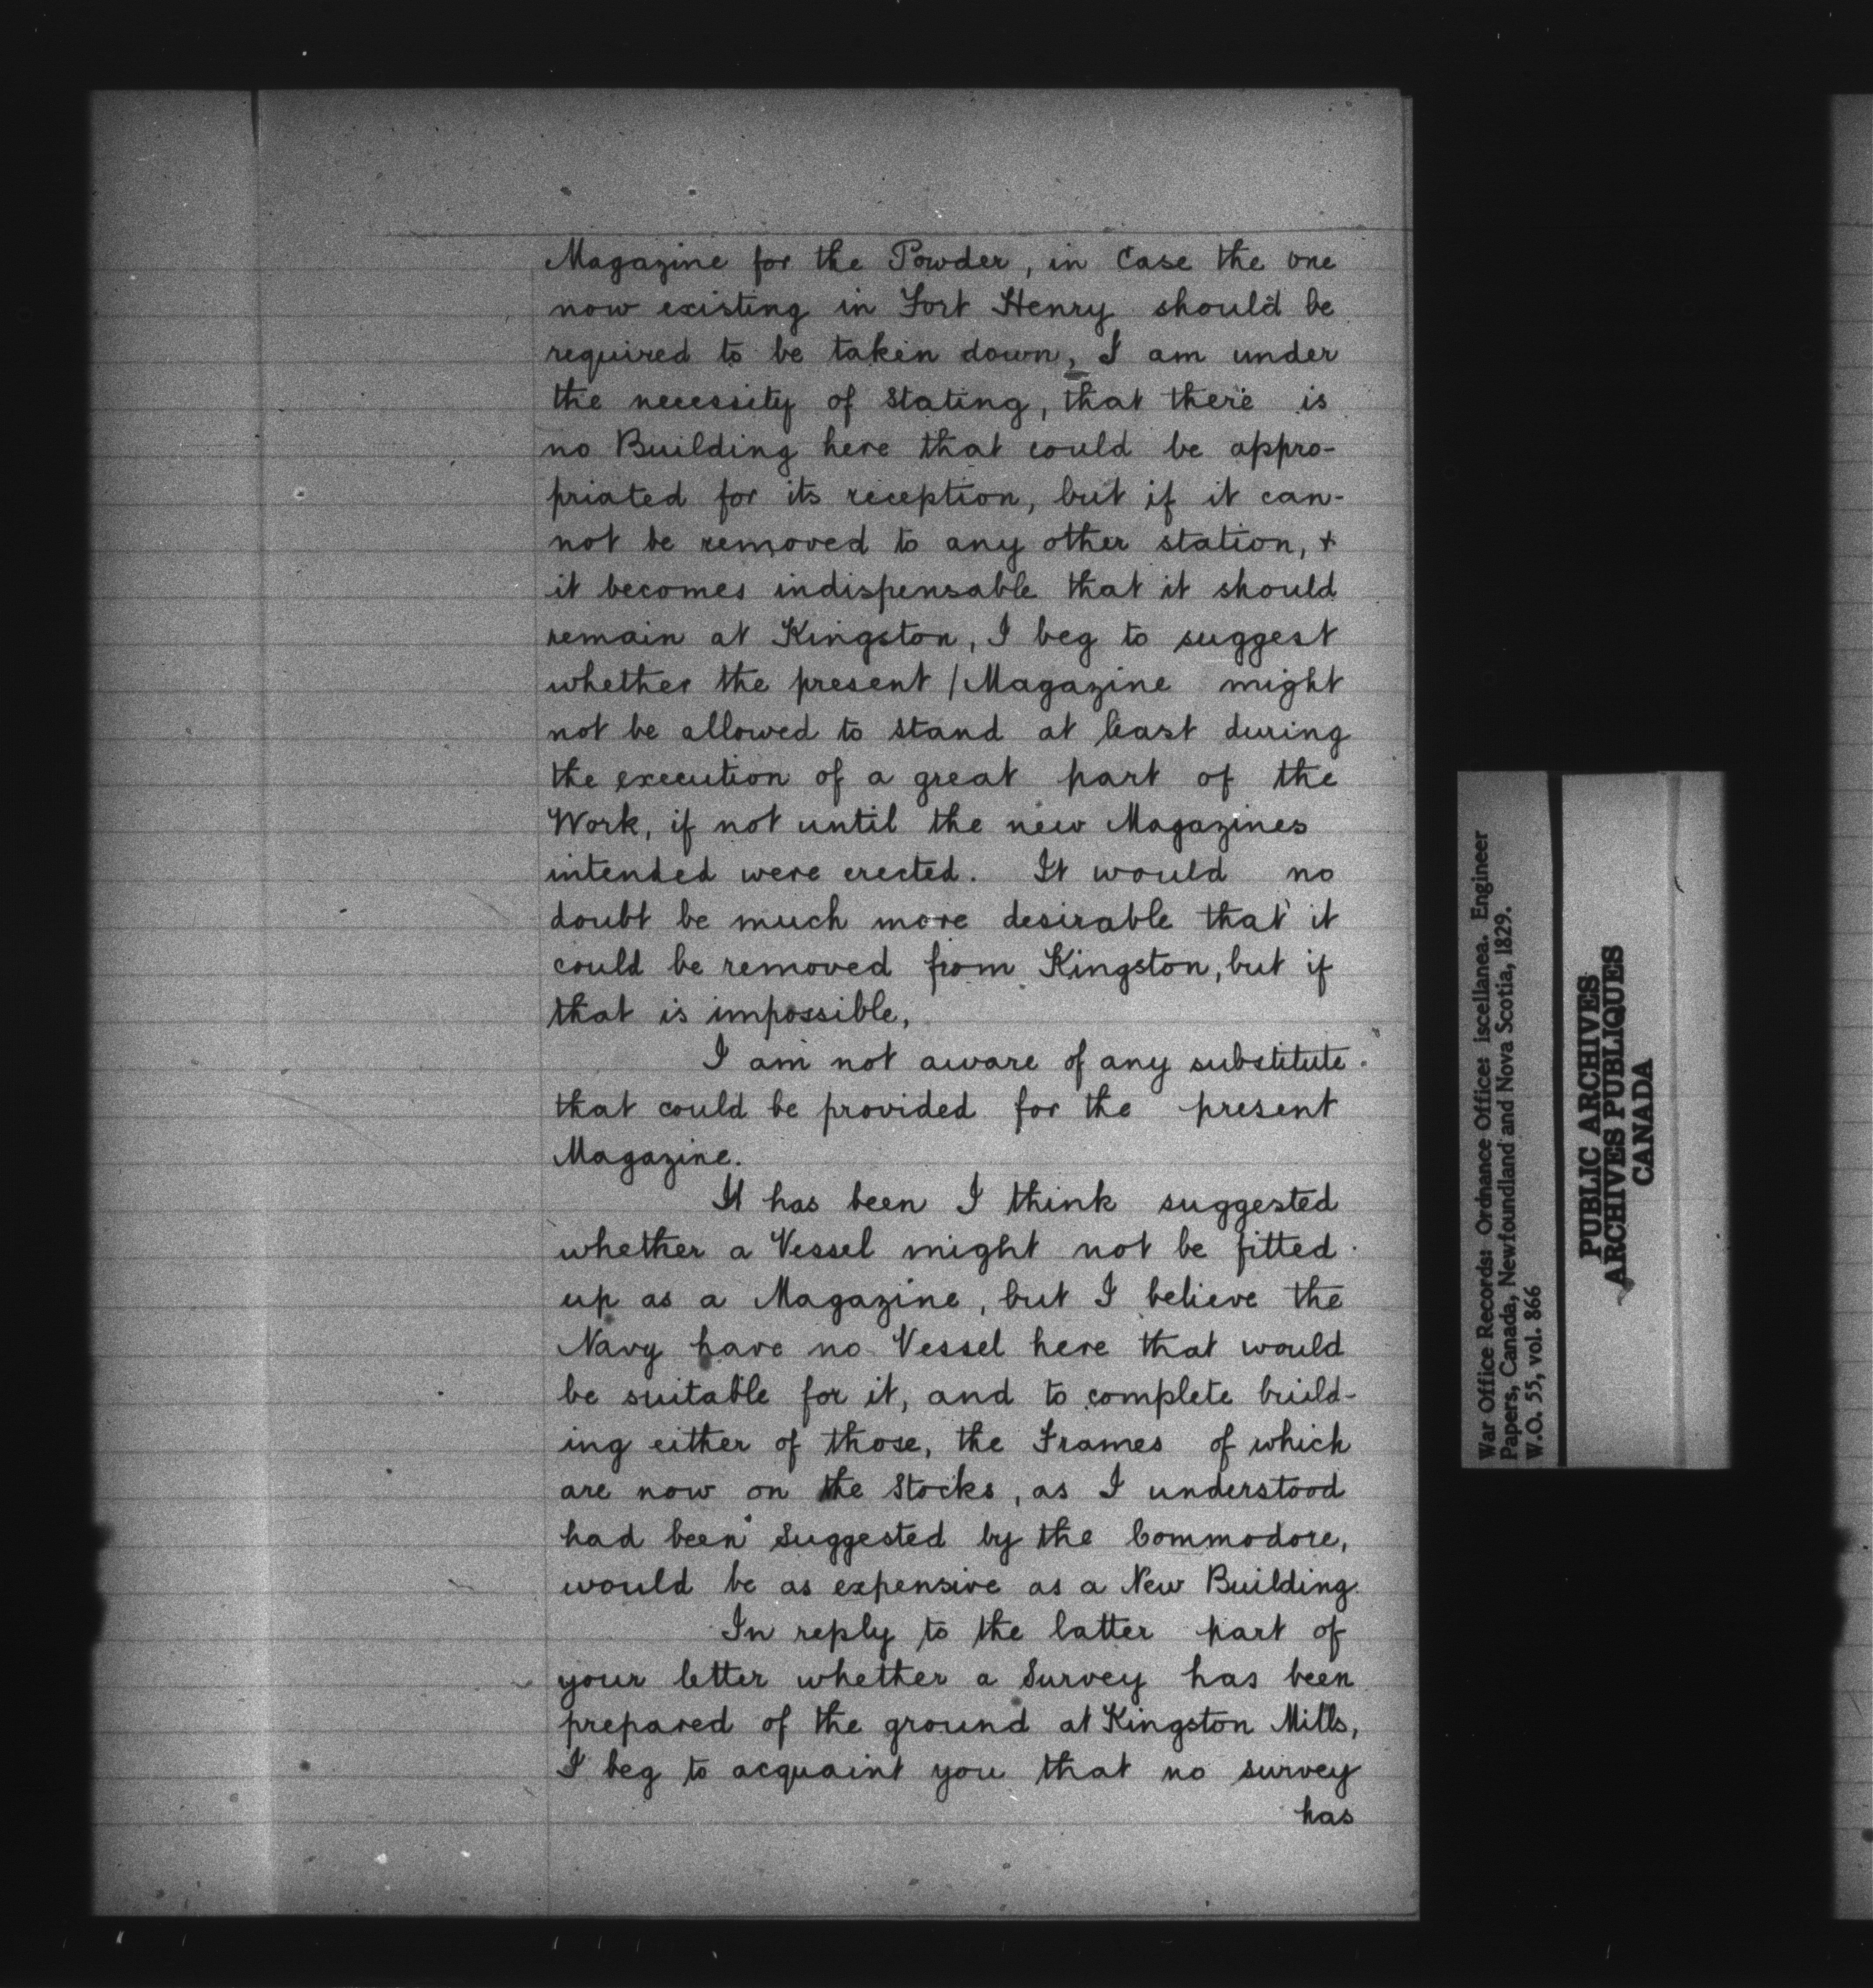 Magazine for the Powder, in Case the one
now existing in Fort Henry should be
required to be taken down, I am under
the necessity of Stating, that there is
no Building here that could be appro-
priated for its reception, but if it can-
not be removed to any other station, +
it becomes indispensable that it should
remain at Kingston, I beg to suggest
whether the present /Magazine might
not be allowed to stand at least during
the execution of a great part of the
Work, if not until the new Magazines
intended were erected. It would no
doubt be much more desirable that it
could be removed from Kingston, but if
that is impossible,
I am not aware of any substitute
that could be provided for the present
Magazine.
It has been I think suggested
whether a Vessel might not be fitted
up as a Magazine, but I believe the
Navy have no Vessel here that would
be suitable for it, and to complete build-
ing either of those, the Frames of which
are now on the Stocks, as I understood
had been Suggested by the Commodore,
would be as expensive as a New Building.
In reply to the latter part of
your letter whether a Survey has been
prepared of the ground at Kingston Mills,
I beg to acquaint you that no survey
has
War Office Records: Ordnance Office: iscellanea. Engineer
Papers, Canada, Newfoundland and Nova Scotia, 1829.
W.O. 55, vol. 866
PUBLIC ARCHIVES
ARCHIVES PUBLIQUES
CANADA